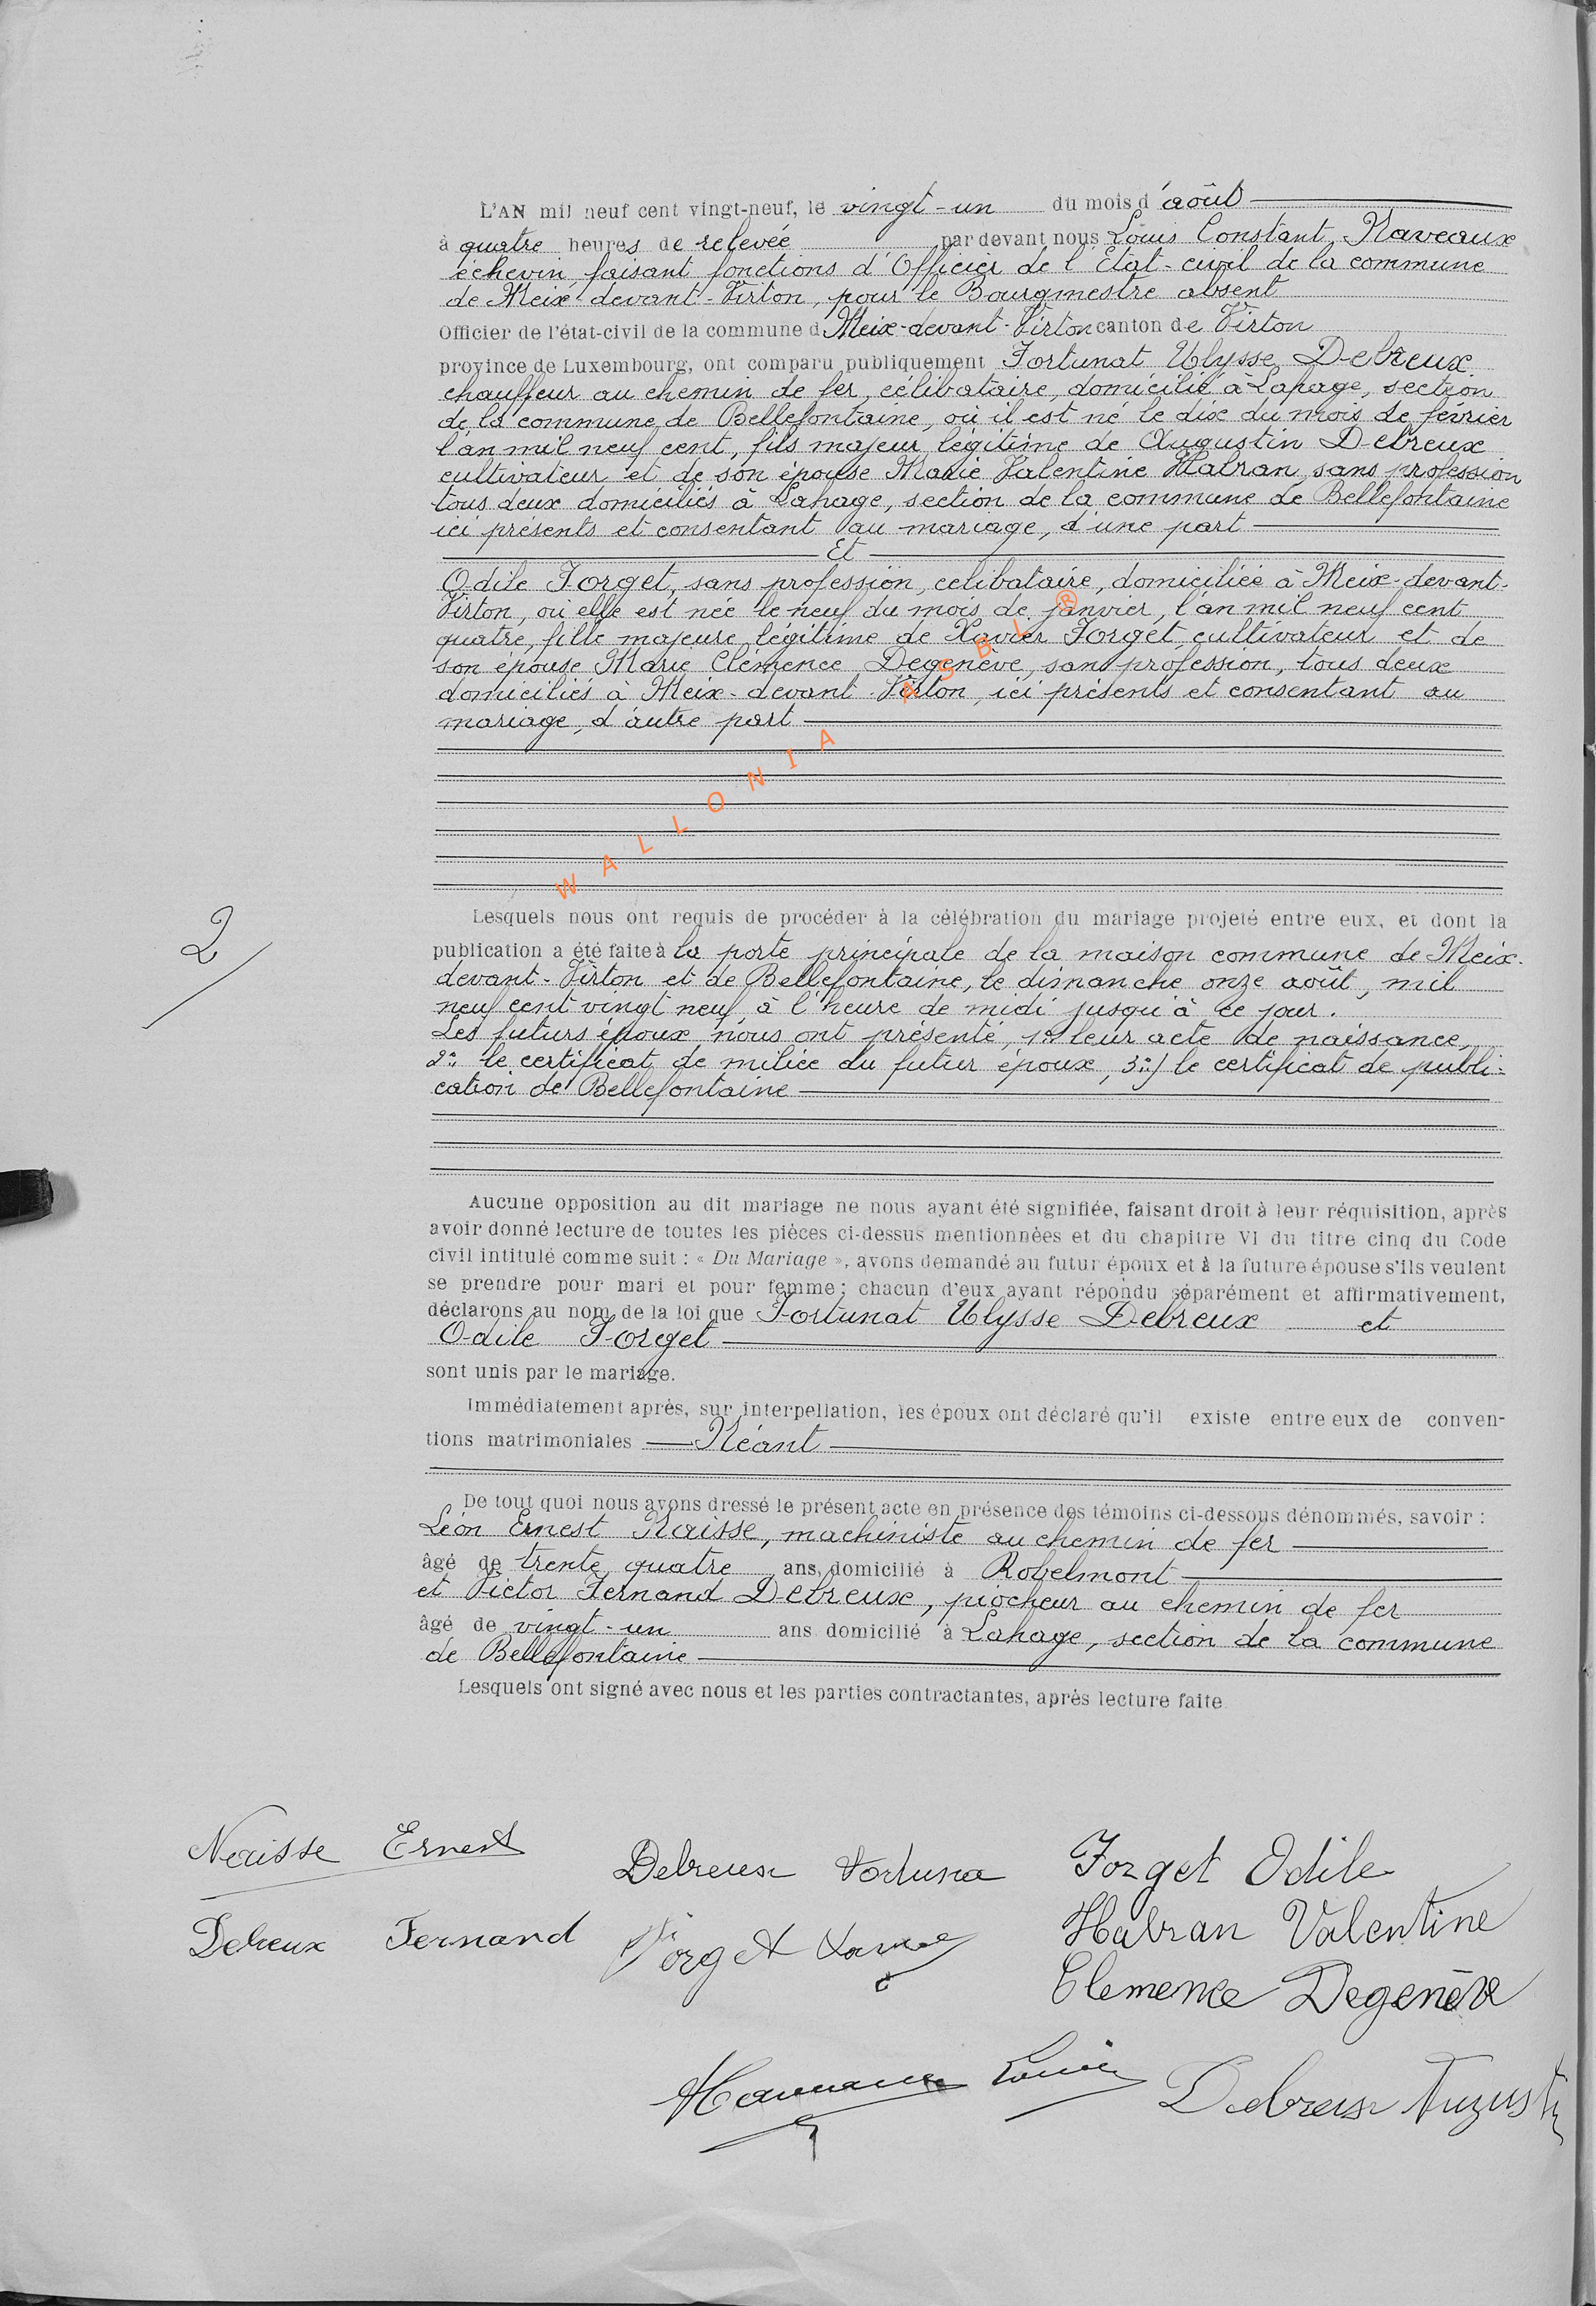 L'AN mil neuf cent vingt-neuf, le vingt-un du mois d'août
à quatre heures de relevée par devant nous Louis Constant Naveaux
échevin, faisant fonctions d'Officier de l'Etat-civil de la commune
de Meix-devant-Virton, pour le Bourgmestre absent
Officier de l'état-civil de la commune d Meix-devant-Virton canton de Virton
province de Luxembourg, ont comparu publiquement Fortunat Ulysse Debreux
chauffeur au chemin de fer, célibataire, domicilié à Lahage, section
de la commune de Bellefontaine, où il est né le dix du mois de février
l'an mil neuf cent, fils majeur légitime de Augustin Debreux
cultivateur et de son épouse Marie Valentine Habran, sans profession
tous deux domiciliés à Lahage, section de la commune de Bellefontaine
ici présents et consentant au mariage, d'une part
Et
Odile Forget, sans profession, célibataire, domiciliée à Meix-devant-
Virton, où elle est née le neuf du mois de janvier, l'an mil neuf cent
quatre, fille majeure légitime de Xavier Forget, cultivateur et de
son épouse Marie Clémence Degenève, sans profession, tous deux
domiciliés à Meix-devant-Virton, ici présents et consentant au
mariage, d'autre part
WALLONIA ASBL ®
2
Lesquels nous ont requis de procéder à la célébration du mariage projeté entre eux, et dont la
publication a été faite à la porte principale de la maison commune de Meix-
devant-Virton et de Bellefontaine, le dimanche onze août, mil
neuf cent vingt neuf, à l'heure de midi jusqu'à ce jour.
Les futurs époux nous ont présenté, 1° leur acte de naissance,
2° le certificat de milice du futur époux, 3°) le certificat de publi-
cation de Bellefontaine
Aucune opposition au dit mariage ne nous ayant été signifiée, faisant droit à leur réquisition, après
avoir donné lecture de toutes les pièces ci-dessus mentionnées et du chapitre VI du titre cinq du Code
civil intitulé comme suit : « Du Mariage », avons demandé au futur époux et à la future épouse s'ils veulent
se prendre pour mari et pour femme ; chacun d'eux ayant répondu séparément et affirmativement,
déclarons au nom de la loi que Fortunat Ulysse Debreux et
Odile Forget
sont unis par le mariage.
Immédiatement après, sur interpellation, les époux ont déclaré qu'il existe entre eux de conven-
tions matrimoniales Néant
De tout quoi nous avons dressé le présent acte en présence des témoins ci-dessous dénommés, savoir :
Léon Ernest Naisse, machiniste au chemin de fer
âgé de trente quatre ans, domicilié à Robelmont
et Victor Fernand Debreux, piocheur au chemin de fer
âgé de vingt-un ans domicilié à Lahage, section de la commune
de Bellefontaine
Lesquels ont signé avec nous et les parties contractantes, après lecture faite
Naisse Ernest Debreux Fortuna Forget Odile
Debreux Fernand Forget Habran Valentine
Clemence Degenève
Louis Debreux Augustin